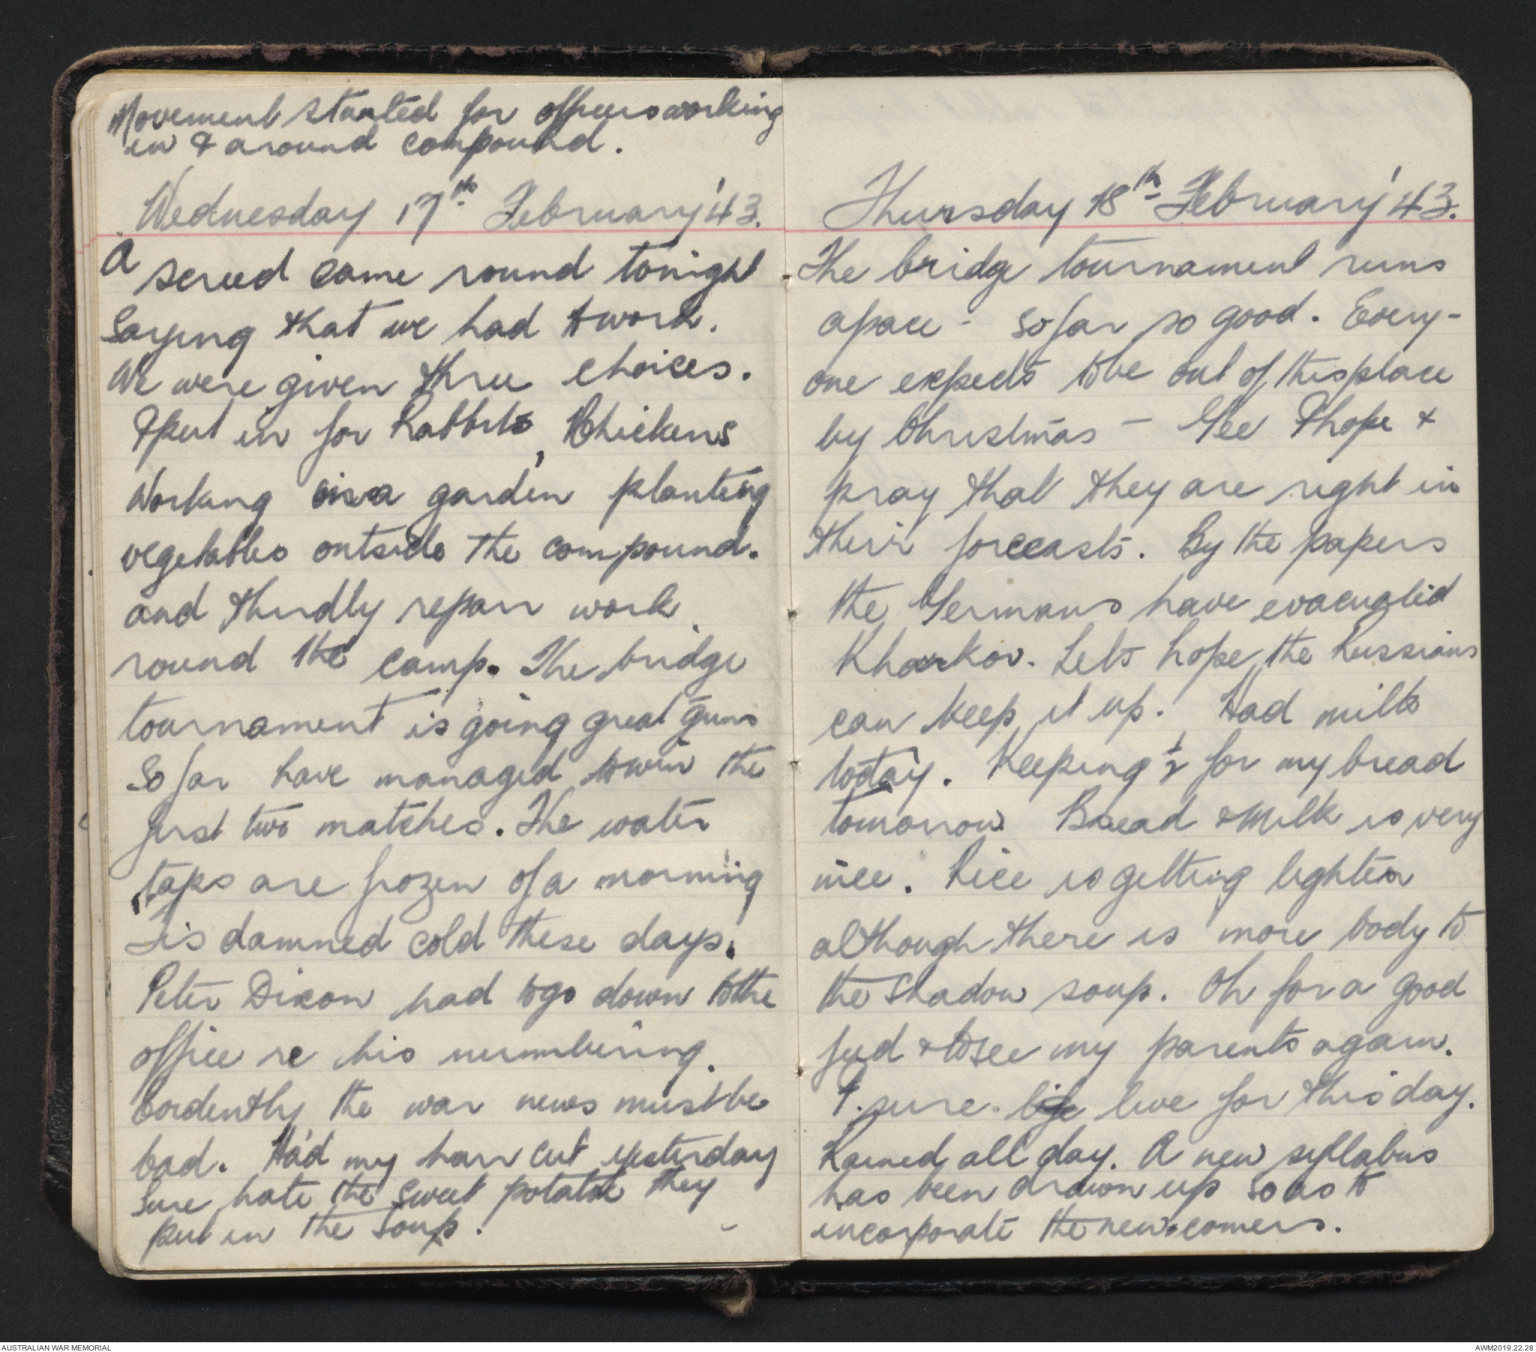 Movement started for officers working
in & around compound.
Wednesday 17th February '43.
A screed came round tonight
saying that we had to work.
We were given three choices.
I put in for Rabbits, Chickens
Working in a garden planting
vegetables outside the compound.
and thirdly repair work
round the camp. The bridge
tournament is going great guns
So far have managed to win the
first two matches. The water
taps are frozen of a morning
Tis damned cold these days.
Peter Dixon had to go down to the
office re his numbering.
Evidently the war news must be
bad. Had my hair cut yesterday
Sure hate the sweet potatoe they
put in the soup.
Thursday 18th February '43.
The bridge tournament runs
apace - so far so good. Every-
one expects to be out of this place
by Christmas - Gee I hope &
pray that they are right in
their forecasts. By the papers
the Germans have evacuated
Kharkov. Lets hope the Russians
can keep it up. Had milk
today. Keeping ½ for my bread
tomorrow Bread & milk is very
nice. Rice is getting lighter
although there is more body to
the shadow soup. Oh for a good
feed & to see my parents again.
I sure live for this day.
Rained all day. A new syllabus
has been drawn up so as to
incorporate the newcomers.
AUSTRALIAN WAR MEMORIAL
AWM2019.22.28